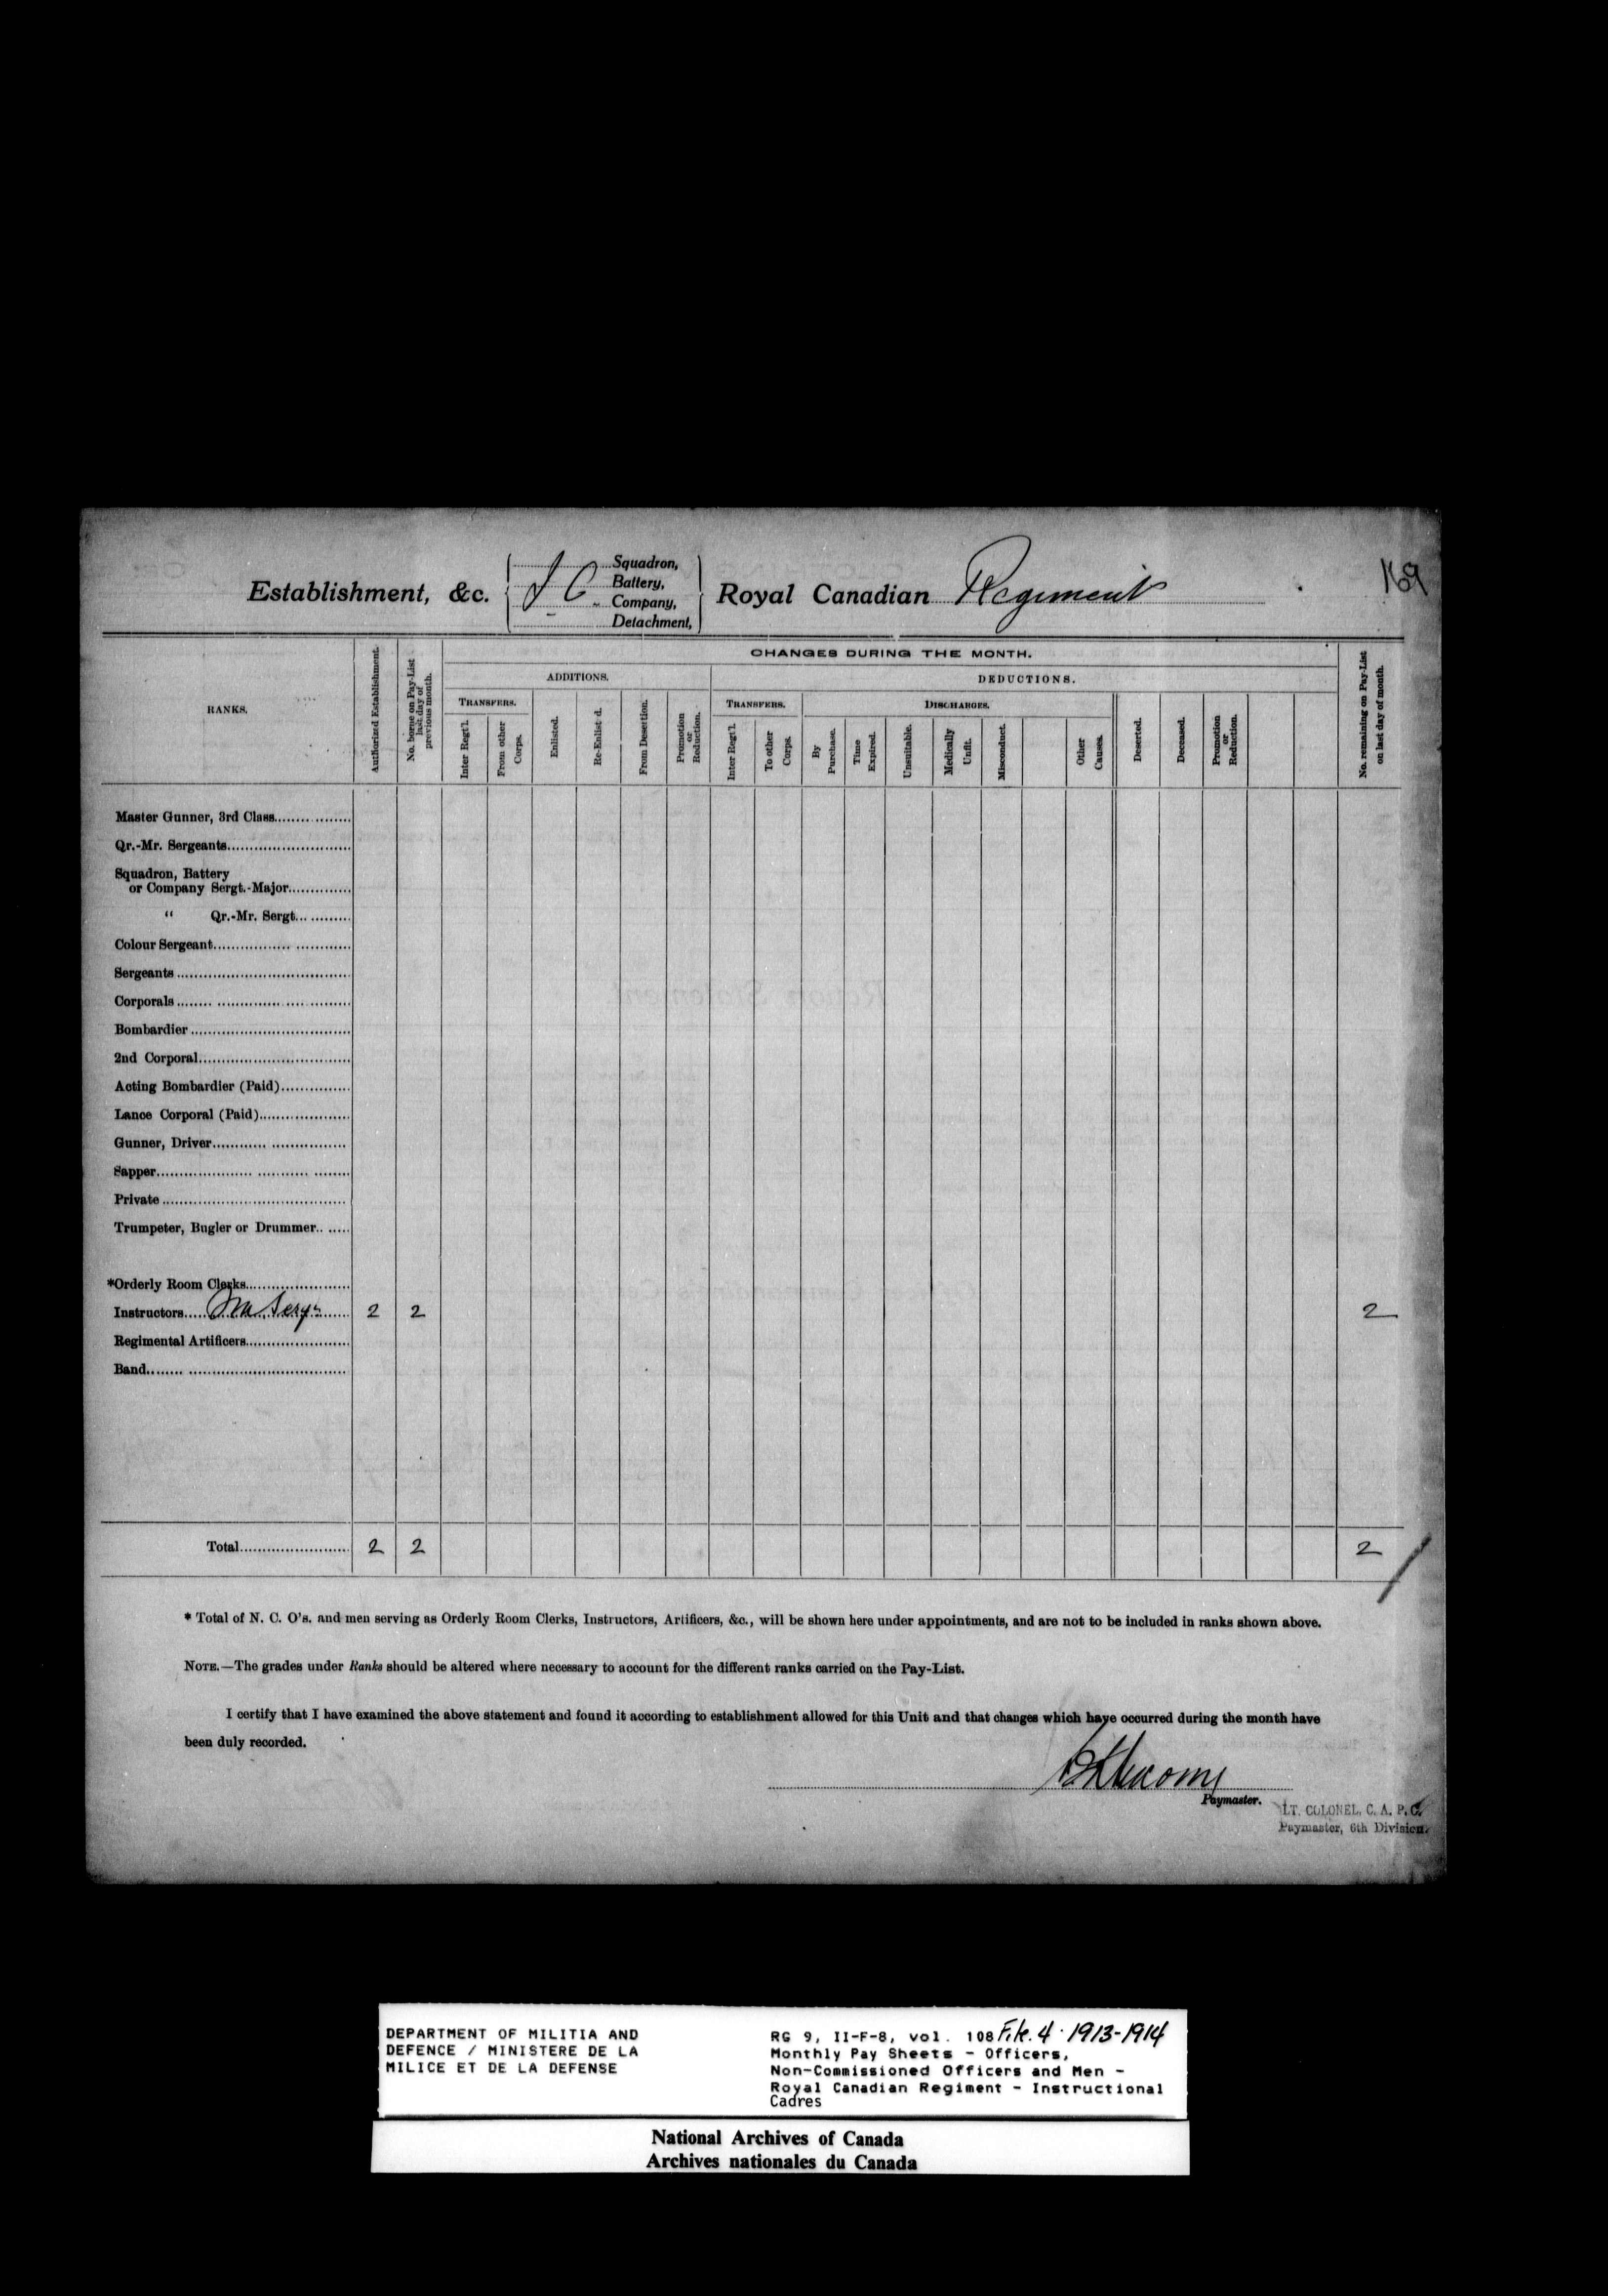 169
Establishment, &c. I C Squadron, Battery, Company, Detachment, Royal Canadian Regiment
RANKS.
Authorized Establishment.
No. borne on Pay-List last day of previous month.
CHANGES DURING THE MONTH.
ADDITIONS.
DEDUCTIONS.
TRANSFERS.
Inter Regt'l.
From other Corps.
Enlisted.
Re-Enlist d.
From Desertion.
Promotion or Reduction.
TRANSFERS.
Inter Regt'l.
To other Corps.
DISCHARGES.
By Purchase.
Time Expired.
Unsuitable.
Medically Unfit.
Misconduct.
Other Causes.
Deserted.
Deceased.
Promotion or Reduction.
No. remaining on Pay-List on last day of month.
Master Gunner, 3rd Class
Qr.-Mr. Sergeants
Squadron, Battery
or Company Sergt.-Major
" Qr.-Mr. Sergt.
Colour Sergeant
Sergeants
Corporals
Bombardier
2nd Corporal
Acting Bombardier (Paid)
Lance Corporal (Paid)
Gunner, Driver
Sapper
Private
Trumpeter, Bugler or Drummer
*Orderly Room Clerks
Instructors 2 2 2
Regimental Artificers
Band
Total 2 2 2
* Total of N. C. O's. and men serving as Orderly Room Clerks, Instructors, Artificers, &c., will be shown here under appointments, and are not to be included in ranks shown above.
NOTE.—The grades under Ranks should be altered where necessary to account for the different ranks carried on the Pay-List.
I certify that I have examined the above statement and found it according to establishment allowed for this Unit and that changes which have occurred during the month have
been duly recorded.
Paymaster.
LT. COLONEL, C. A. P. C.
Paymaster, 6th Division.
DEPARTMENT OF MILITIA AND
DEFENCE / MINISTERE DE LA
MILICE ET DE LA DEFENSE
RG 9, II-F-8, vol. 108 File. 4 · 1913-1914
Monthly Pay Sheets - Officers,
Non-Commissioned Officers and Men -
Royal Canadian Regiment - Instructional
Cadres
National Archives of Canada
Archives nationales du Canada